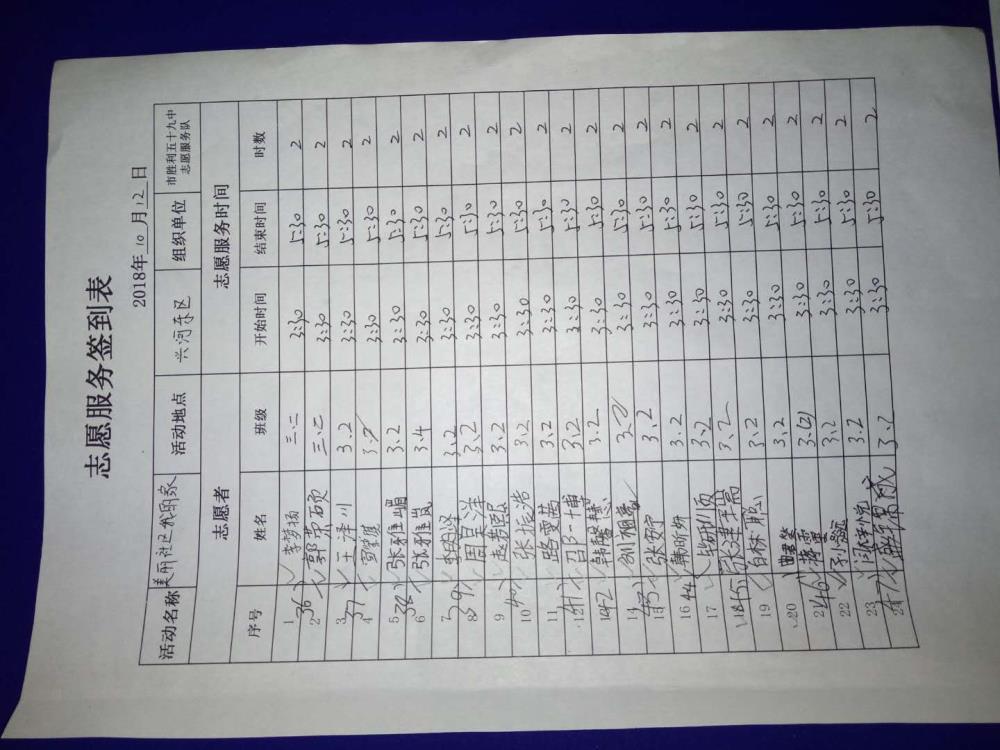 志愿服务签到表
2018年10月12日
活动名称 美丽社区我的家 活动地点 兴河东区 组织单位 市胜利五十九中志愿服务队
志愿者 志愿服务时间
序号 姓名 班级 开始时间 结束时间 时数
1 李梦扬 三.二 3:30 5:30 2
2 36 郭荣硕 三.二 3:30 5:30 2
3 王泽川 3.2 3:30 5:30 2
4 37 3.2 3:30 5:30 2
5 张雅嵋 3.2 3:30 5:30 2
6 38 张雅岚 3.4 3:30 5:30 2
7 3.2 3:30 5:30 2
8 39 周昊洋 3.2 3:30 5:30 2
9 3.2 3:30 5:30 2
10 40 张彪浩 3.2 3:30 5:30 2
11 路雯茜 3.2 3:30 5:30 2
12 41 邵一博 3.2 3:30 5:30 2
42 韩馨慧 3.2 3:30 5:30 2
14 3.2 3:30 5:30 2
43 张安宁 3.2 3:30 5:30 2
16 44 韩昕妍 3.2 3:30 5:30 2
17 3.2 3:30 5:30 2
18 45 张津高 3.2 3:30 5:30 2
19 白林聪 3.2 3:30 5:30 2
20 3.2 3:30 5:30 2
2 46 3.(2) 3:30 5:30 2
22 孙小懿 3.2 3:30 5:30 2
23 闫梓悦 3.2 3:30 5:30 2
24 47 3.2 3:30 5:30 2